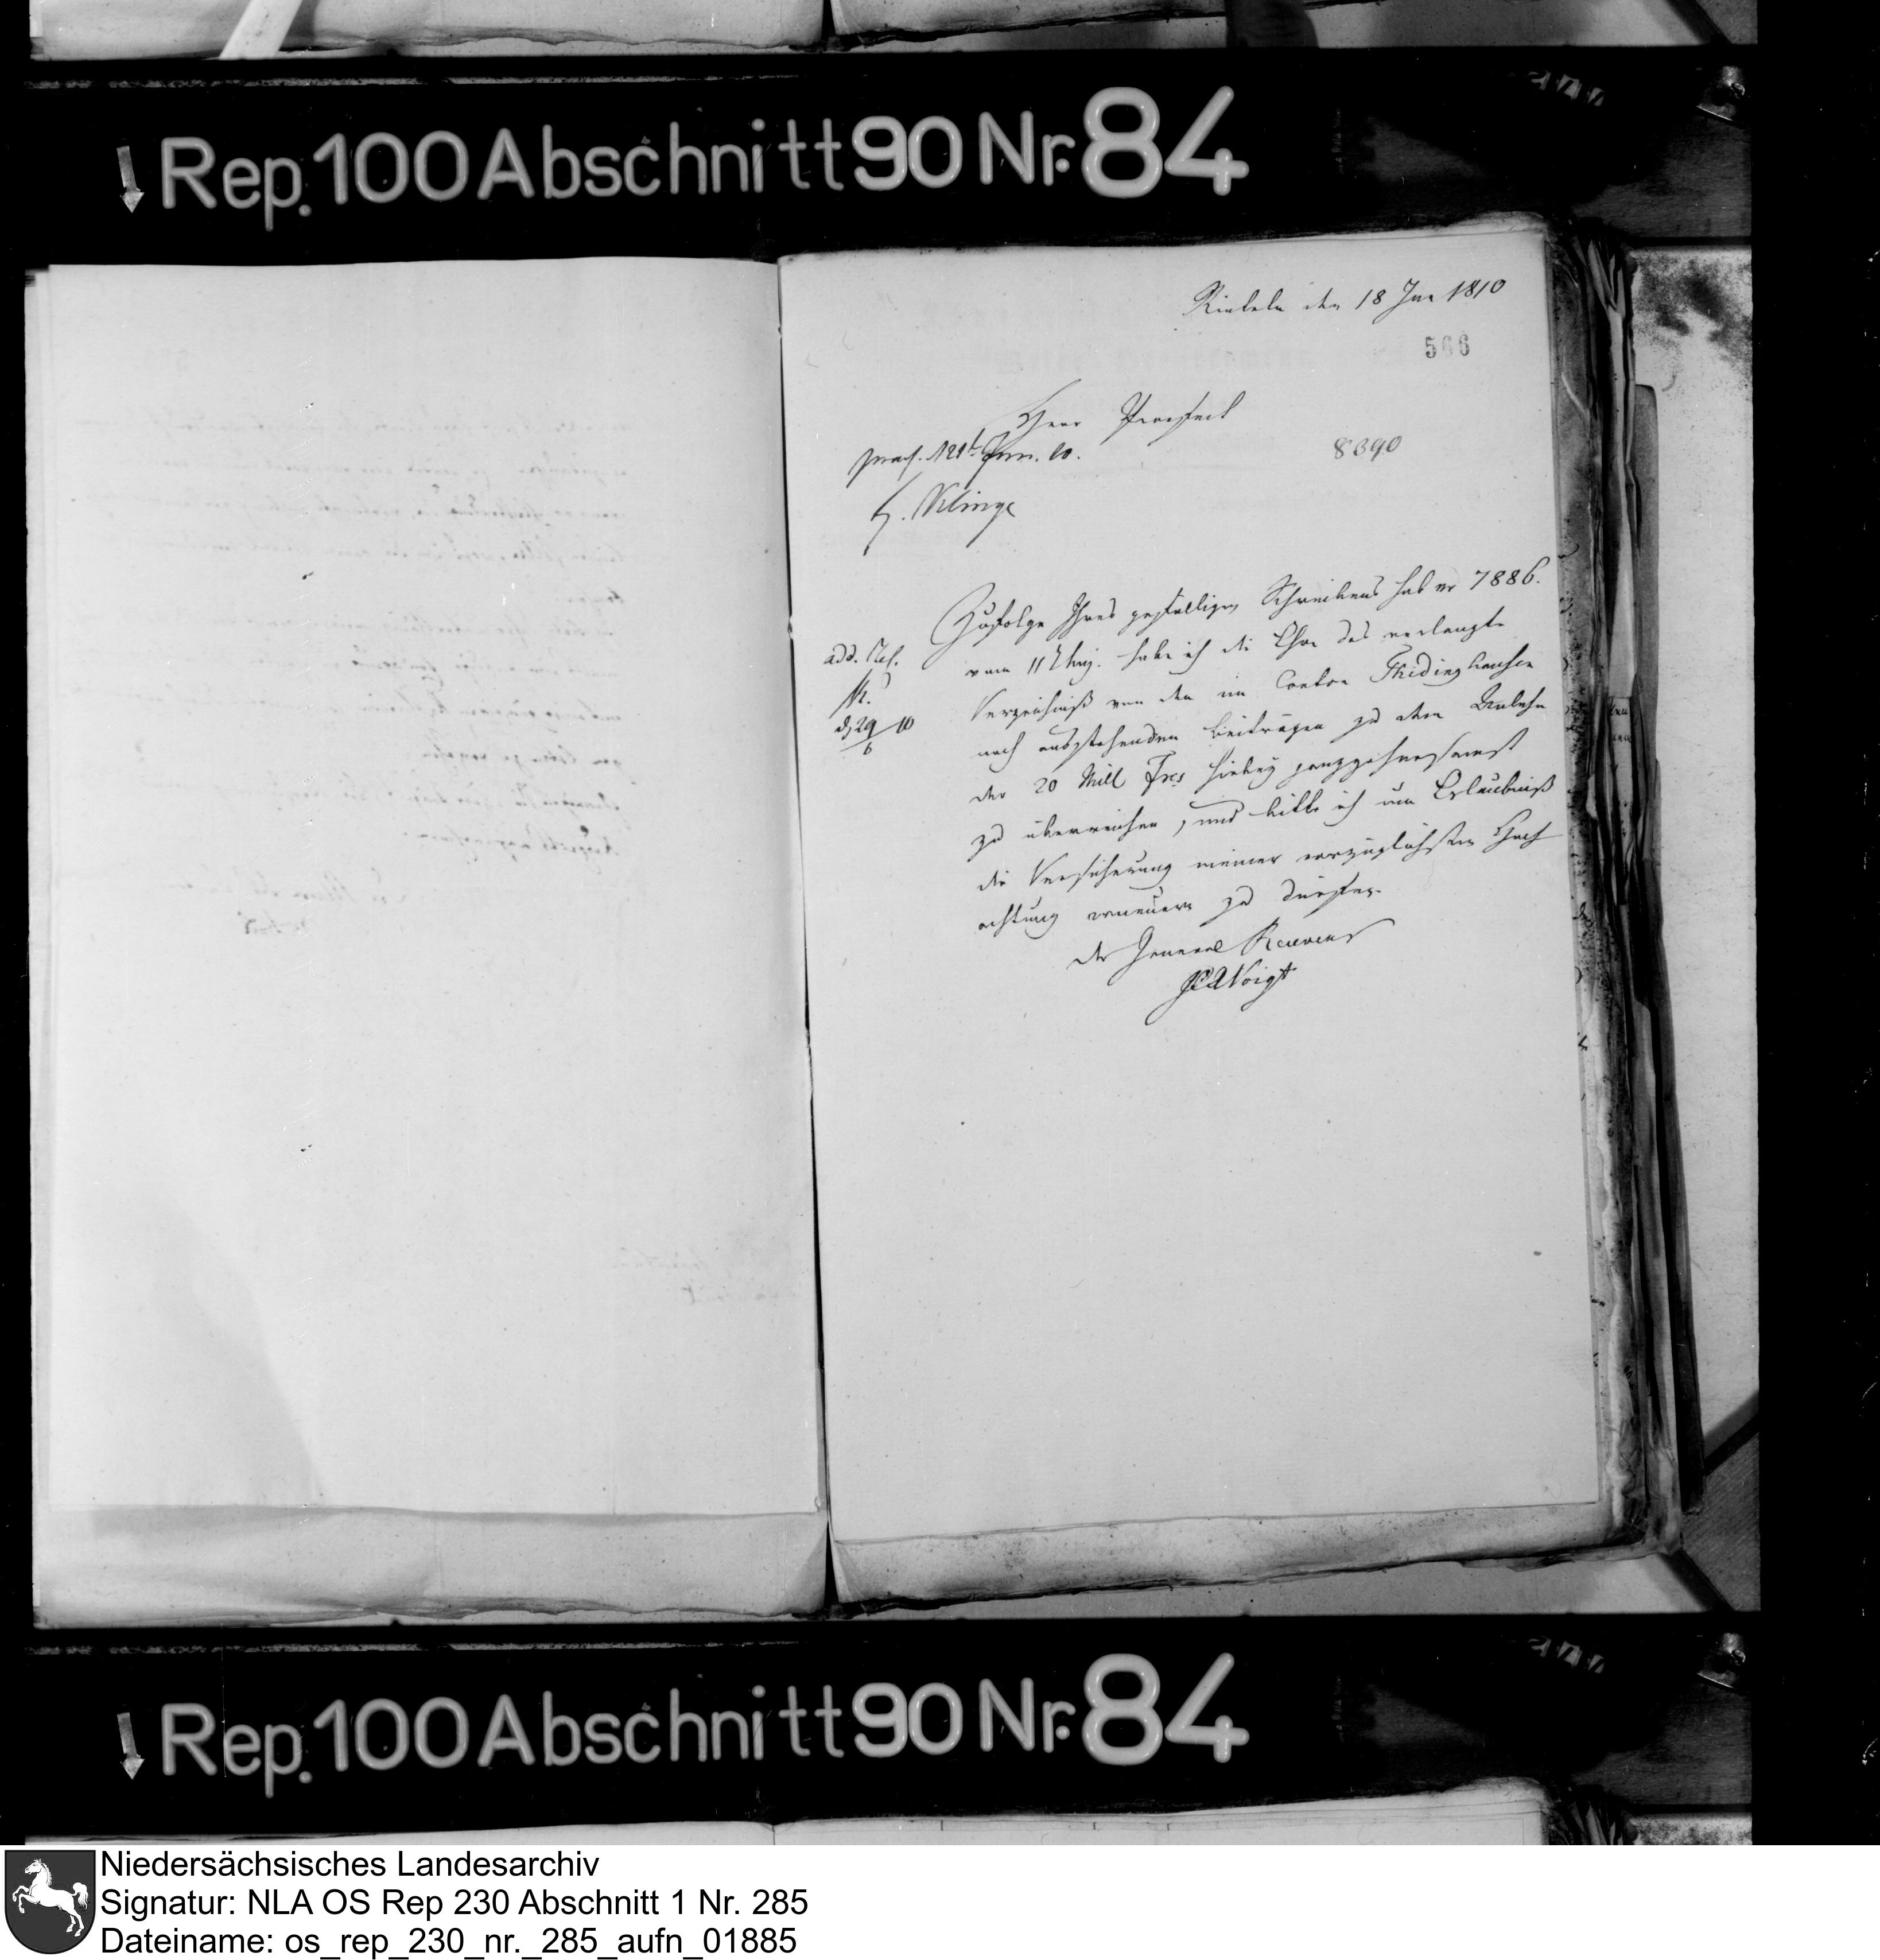 Rep. 100 Abschnitt 90 Nr. 84
Rinteln den 18 Jun 1810
566
Herr Praefect
praes. d 21t Jun. 10.
8390
Klinge
Zufolge Ihres gefälligen Schreibens sub nr 7886.
vom 11t huj. habe ich die Ehre das verlangte
Verzeichniß von den im Canton Thedinghausen
noch ausstehenden Beiträgen zu dem Anlehn
der 20 Mill Frcs hiebey ganzgehorsamst
zu überreichen, und bitte ich um Erlaubniß
die Versicherung meiner vorzüglichsten Hoch
achtung erneuern zu dürfen.
add. Ref.
d, 29/6 10
der General Receveur
Voigt
Rep. 100 Abschnitt 90 Nr. 84
Niedersächsisches Landesarchiv
Signatur: NLA OS Rep 230 Abschnitt 1 Nr. 285
Dateiname: os_rep_230_nr._285_aufn_01885